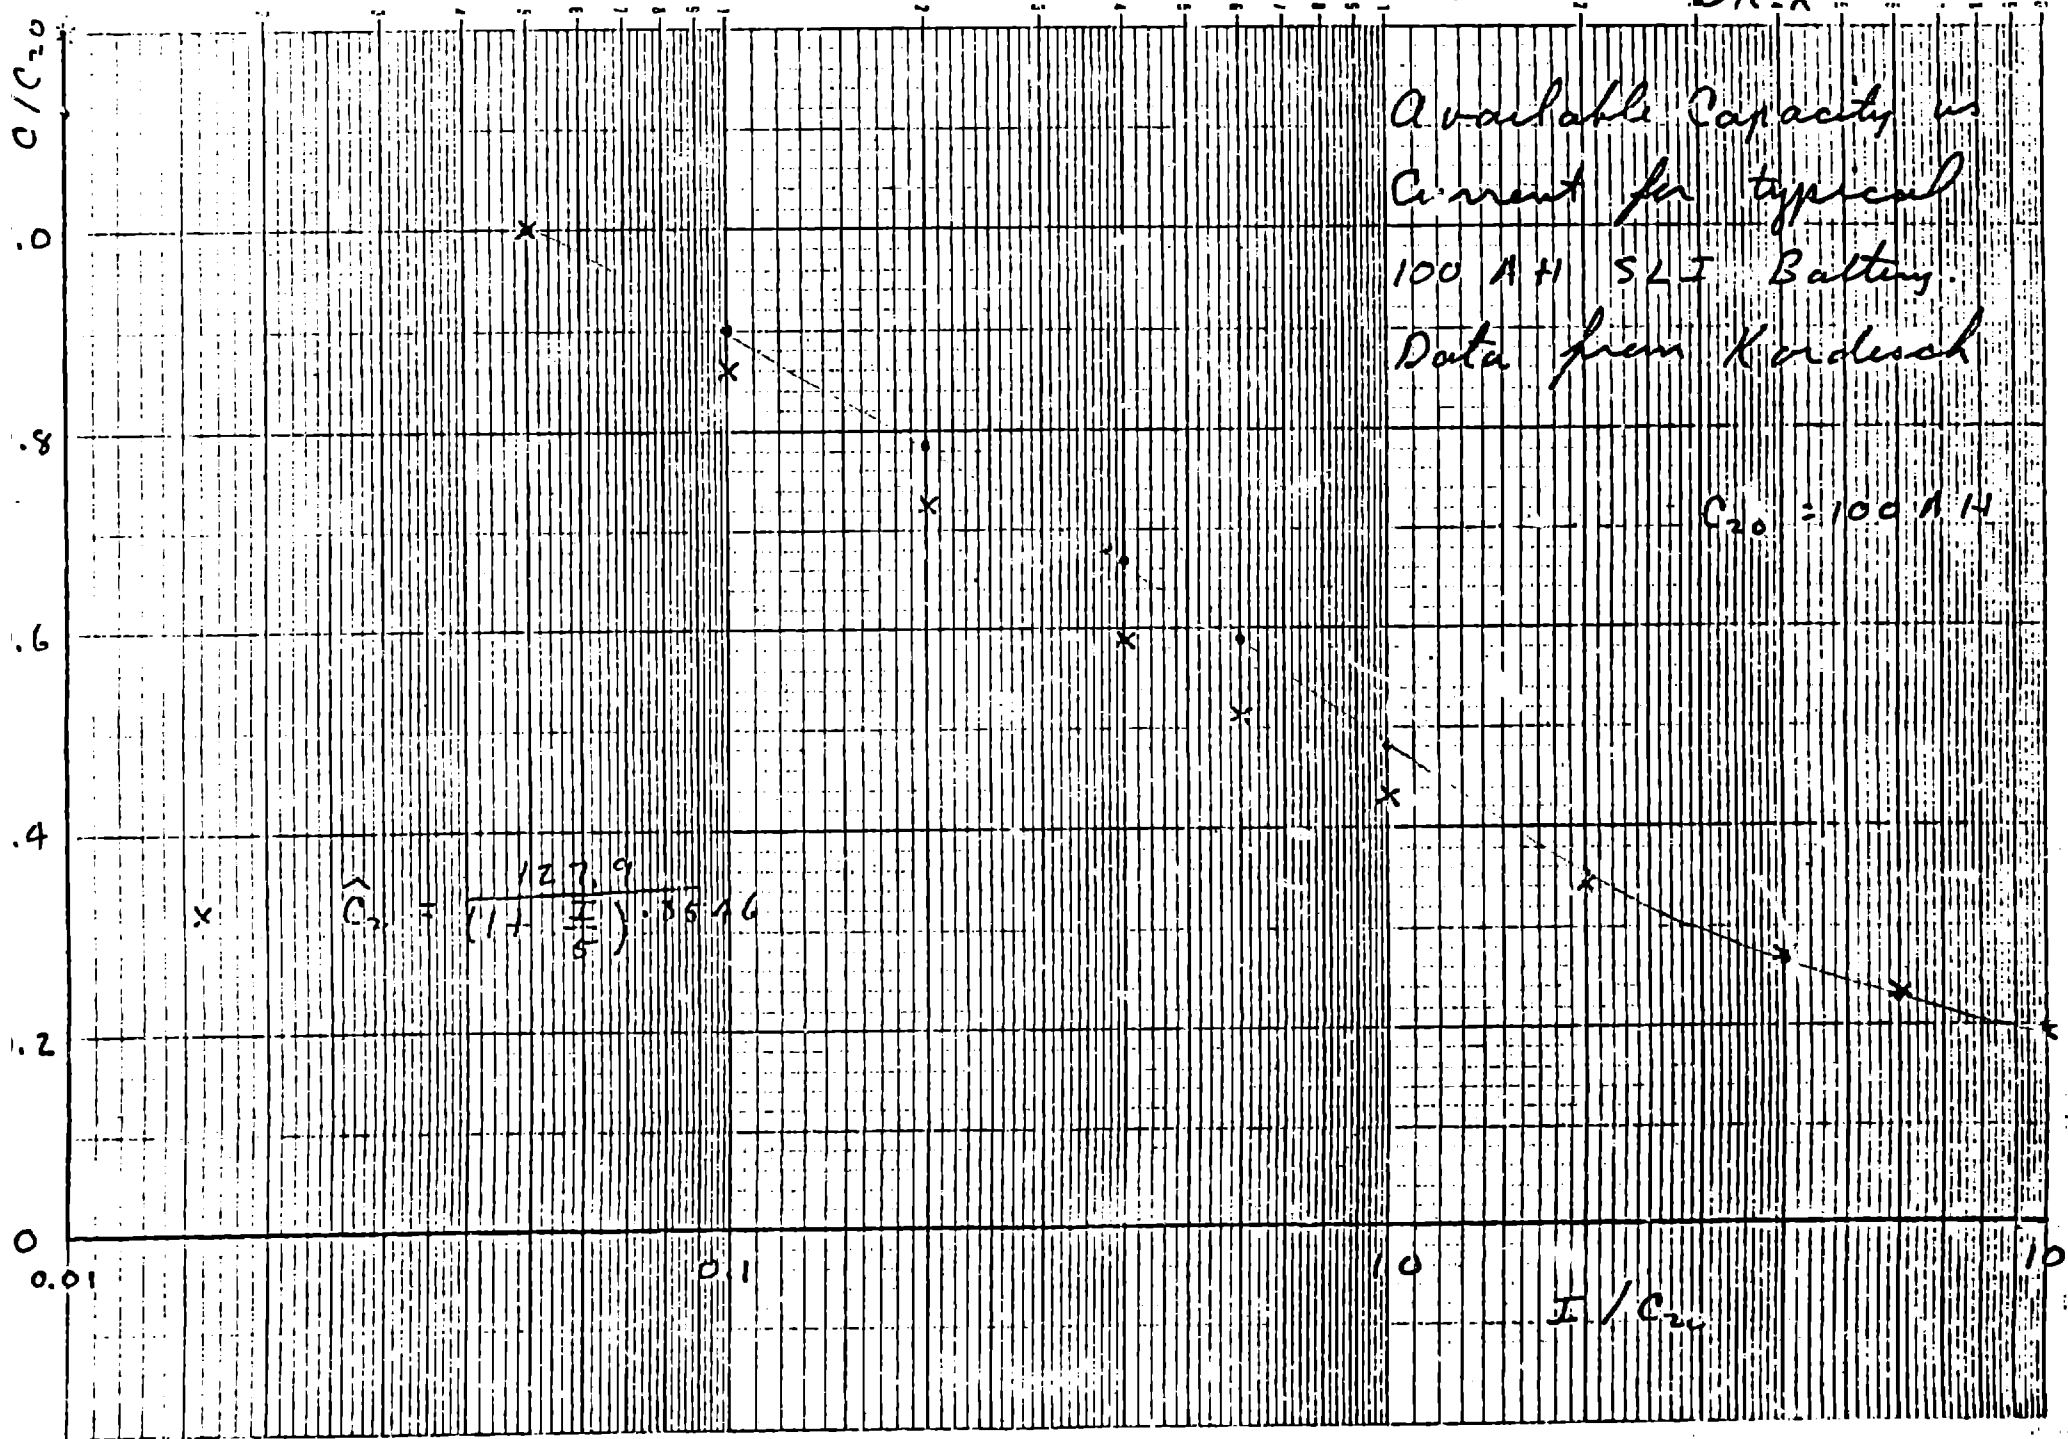 C/C20
Available Capacity vs
Current for typical
100 AH SLI Battery.
Data from Kordesch
C20 = 100 AH
.0
.8
.6
.4
.2
0
x
127.9
(1+ I/5)
0.01
0.1
1.0
10
I/C20